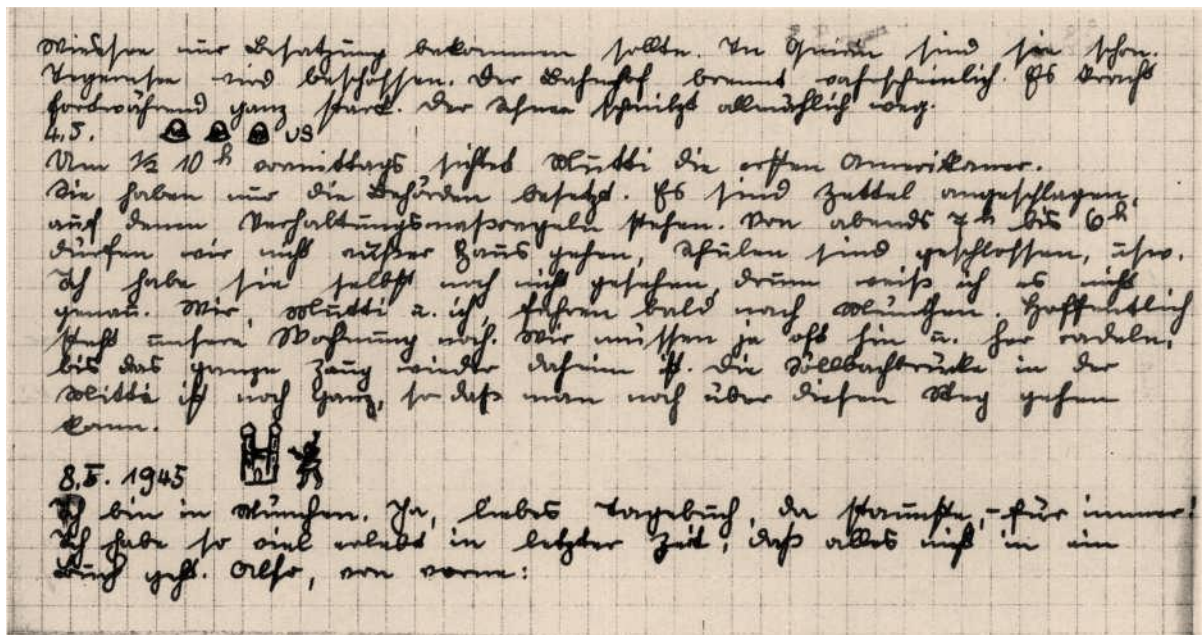 Wiessee nur Besatzung bekommen sollte. In Gmünd sind sie schon.
Tegernsee wird beschossen. Der Bahnhof brennt wahrscheinlich. Es kracht
fortwährend ganz stark. Der Schnee schmilzt allmählich weg.
4.5. US
Um ½ 10 h vormittags sichtet Mutti die ersten Amerikaner.
Sie haben nur die Behörden besetzt. Es sind Zettel angeschlagen,
auf denen Verhaltungsmaßregeln stehen. Von abends 7 h bis 6 h
dürfen wir nicht außer Haus gehen, Schulen sind geschlossen, usw.
Ich habe sie selbst noch nicht gesehen, drum weiß ich es nicht
genau. Wir, Mutti u. ich, fahren bald nach München. Hoffentlich
steht unsere Wohnung noch. Wir müssen ja oft hin u. her radeln,
bis das ganze Zeug wieder daheim ist. Die Söllbachbrücke in der
Mitte ist noch ganz, so daß man noch über diesen Weg gehen
kann.
8.5. 1945
Ich bin in München. Ja, liebes Tagebuch, da staunste, - für immer!
Ich habe so viel erlebt in letzter Zeit, daß alles nicht in ein
Buch geht. Also, von vorne: